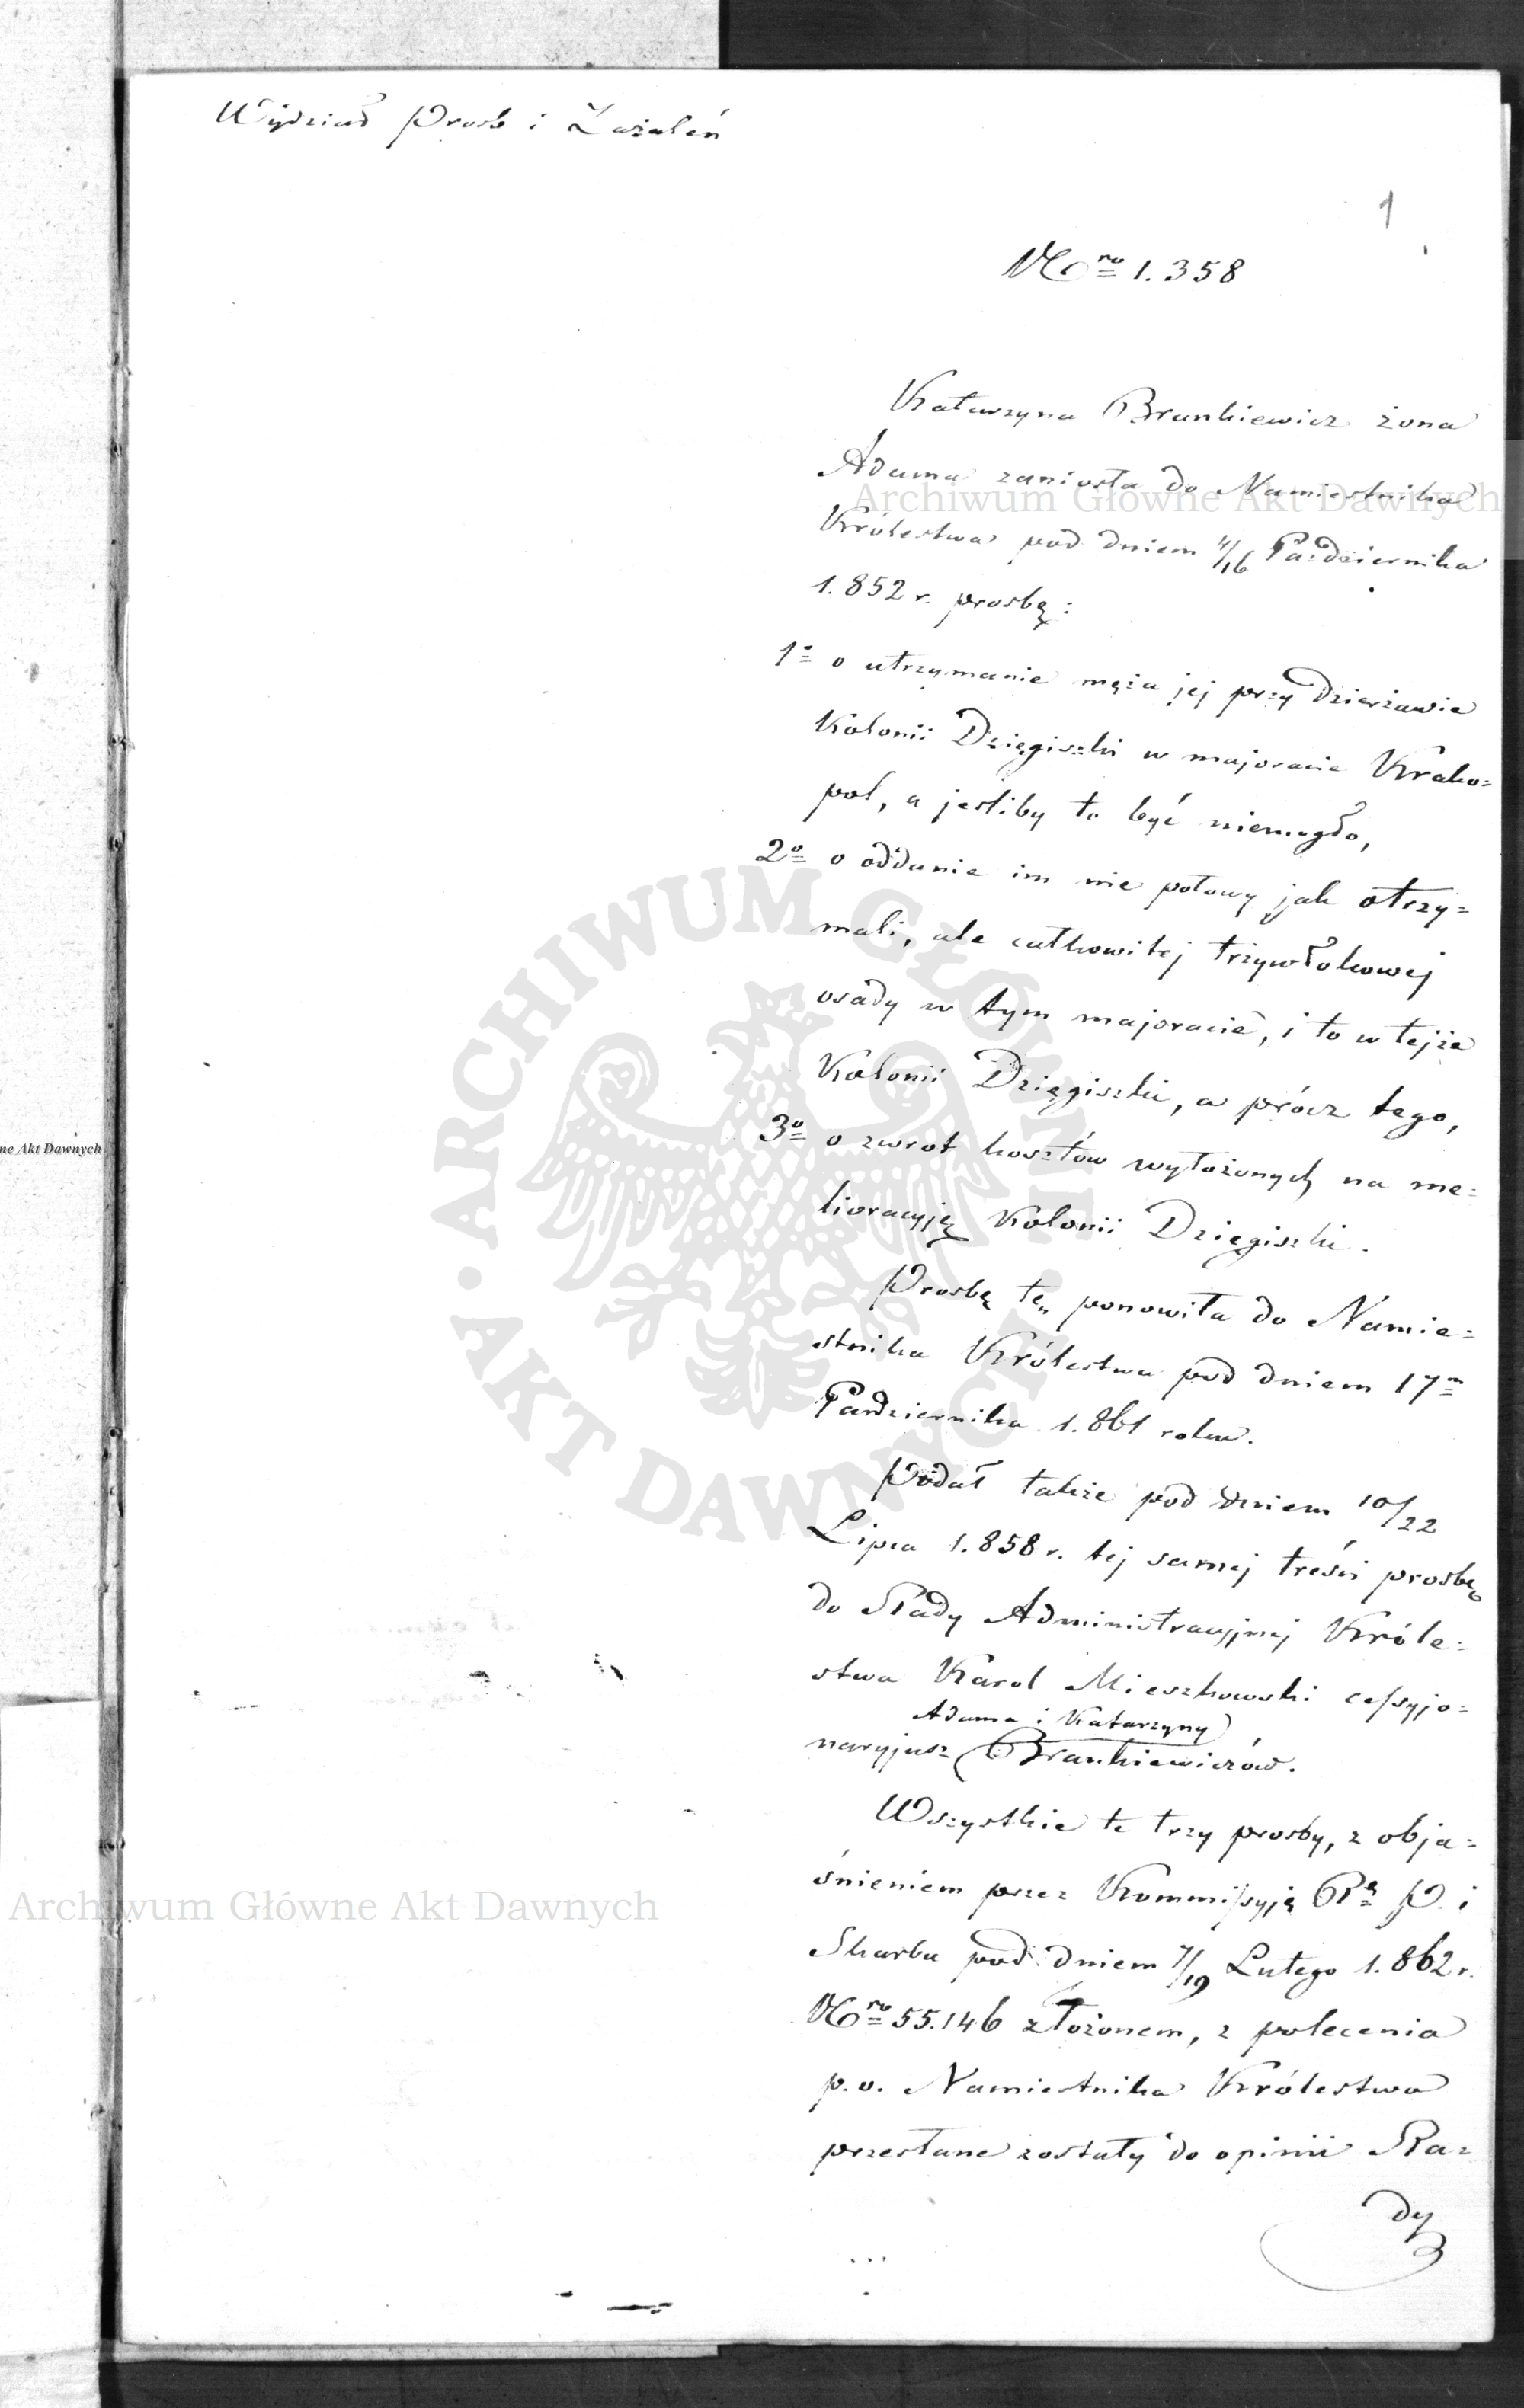 Wydział Prosb i Zażaleń
1
Nro 1.358
Katarzyna Brankiewicz żona
Adama zaniosła do Namiestnika
Królestwa pod dniem 4/16 Października
1.852 r. prosbę:
1o o utrzymanie męża jej przy dzierżawie
Kolonii Dzięgiszki w majoracie Krako=
pol, a jesliby to być niemogło,
2o o oddanie im nie połowy jak otrzy=
mali, ale całkowitej trzywłokowej
osady w tym majoracie, i to w tejże
Kolonii Dzięgiszki, a prócz tego,
3o o zwrot kosztów wyłożonych na me=
lioracyję Kolonii Dzięgiszki.
Prosbę tę ponowiła do Namie=
stnika Królestwa pod dniem 17m
Października 1.861 roku.
Podał także pod dniem 10/22
Lipca 1.858 r. tej samej treści prosbę
do Rady Administracyjnej Króle=
stwa Karol Mieszkowski cessyjo=
Adama i Katarzyny
naryjusz Brankiewiczów.
Wszystkie te trzy prosby, z obja=
śnieniem przez Kommissyję Rą P. i
Skarbu pod dniem 7/19 Lutego 1.862 r.
Nro 55.146 złożonem, z polecenia
p.o. Namiestnika Królestwa
przesłane zostały do opinii Ra=
dy
Archiwum Główne Akt Dawnych
Archiwum Główne Akt Dawnych
ne Akt Dawnych
ARCHIWUM GŁÓWNE · AKT DAWNYCH ·